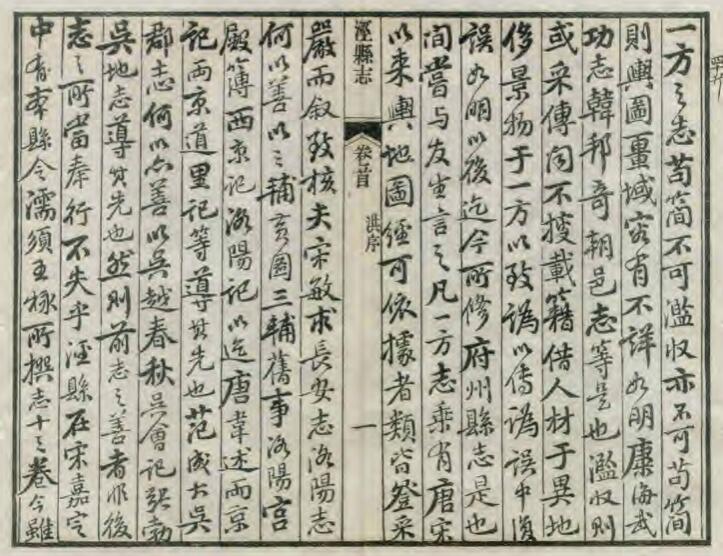 一方之志苟簡不可濫收亦不可苟簡
則輿圖畺域容有不詳如明康海武
功志韓邦奇朝邑志等是也濫收則
或采傳聞不搜載籍借人材于異地
侈景物于一方以致譌以傳譌誤中復
誤如明以後迄今所修府州縣志是也
間嘗与友生言之凡一方志乘有唐宋
以来輿地圖經可依據者類皆登采
涇縣志
卷首
洪序
一
嚴而叙致核夫宋敏求長安志洛陽志
何以善以三輔黄圖三輔舊事洛陽宫
殿簿西京記洛陽記以迄唐韋述兩京
記兩京道里記等導其先也范成大吳
郡志何以亦善以吳越春秋吳會記張勃
吳地志導其先也然則前志之善者非後
志之所當奉行不失乎涇縣在宋嘉定
中有本縣令濡須王栐所撰志十三卷今雖